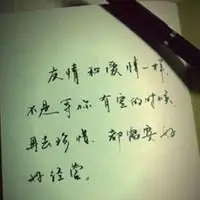 友情和爱情一样，
不是等你有空的时候
再去珍惜、都需要好
好经营。